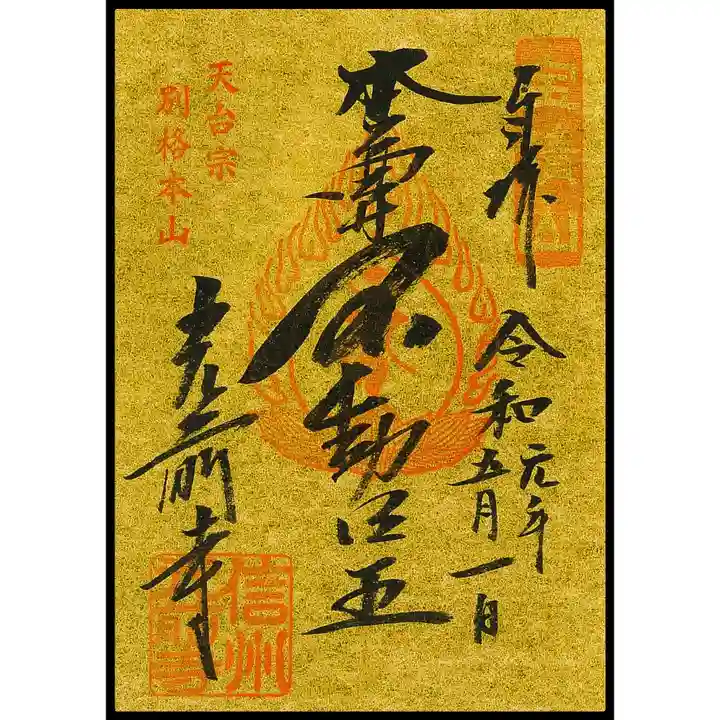 奉拝
令和元年
五月一日
本尊不動明王
天台宗
別格本山
光前寺
信州
光前寺